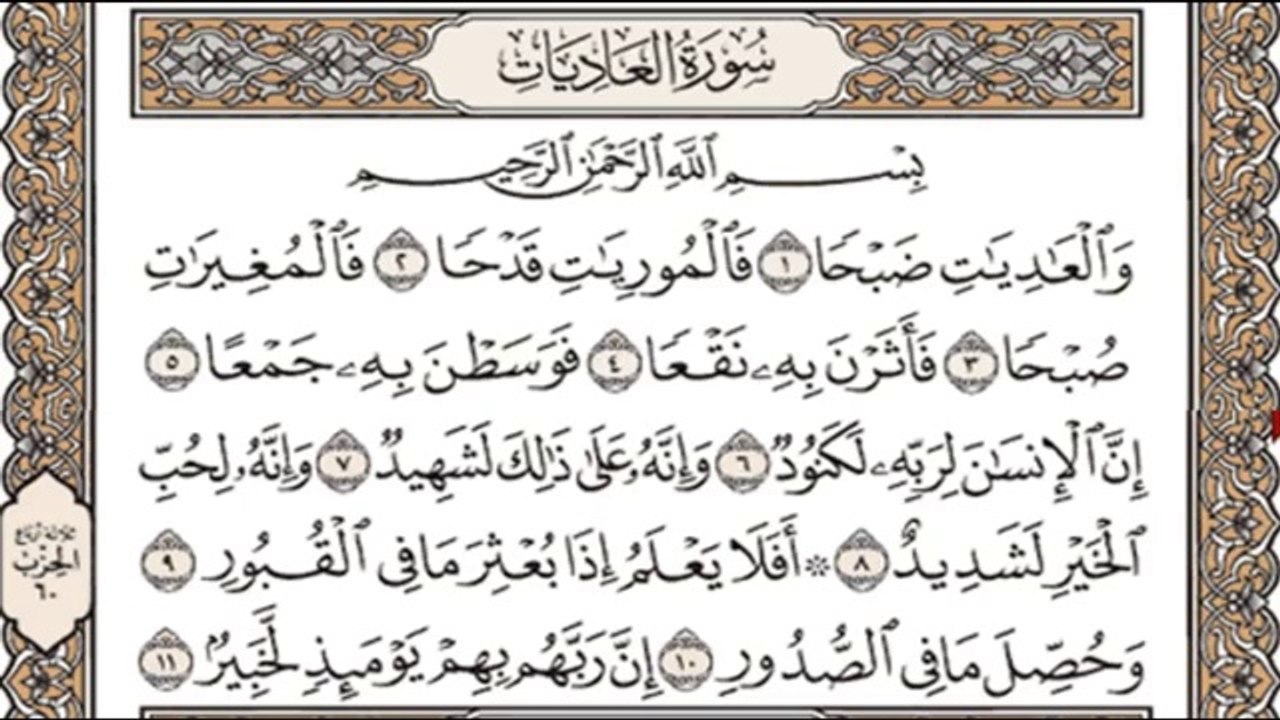 سُورَةُ العَادِيَاتِ
بِسْمِ ٱللَّهِ ٱلرَّحْمَٰنِ ٱلرَّحِيمِ
وَٱلْعَٰدِيَٰتِ ضَبْحًا ١ فَٱلْمُورِيَٰتِ قَدْحًا ٢ فَٱلْمُغِيرَٰتِ
صُبْحًا ٣ فَأَثَرْنَ بِهِۦ نَقْعًا ٤ فَوَسَطْنَ بِهِۦ جَمْعًا ٥
إِنَّ ٱلْإِنسَٰنَ لِرَبِّهِۦ لَكَنُودٌ ٦ وَإِنَّهُۥ عَلَىٰ ذَٰلِكَ لَشَهِيدٌ ٧ وَإِنَّهُۥ لِحُبِّ
ٱلْخَيْرِ لَشَدِيدٌ ٨ ۞ أَفَلَا يَعْلَمُ إِذَا بُعْثِرَ مَا فِي ٱلْقُبُورِ ٩
وَحُصِّلَ مَا فِي ٱلصُّدُورِ ١٠ إِنَّ رَبَّهُم بِهِمْ يَوْمَئِذٍ لَّخَبِيرٌۢ ١١
ثلاثة أرباع
الحِزْبُ
٦٠